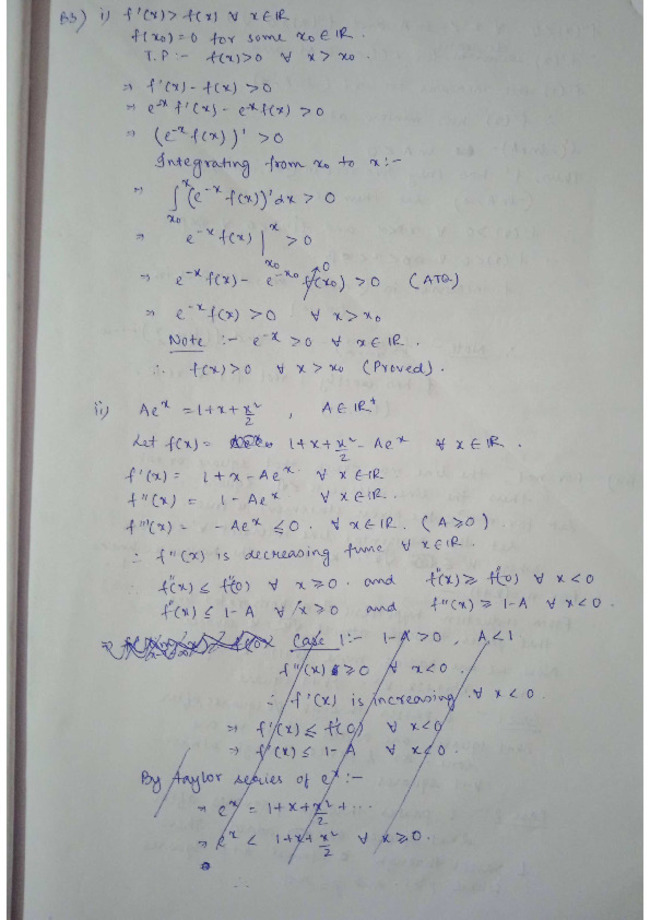 B3) i) f'(x) > f(x) ∀ x ∈ ℝ
f(x₀) = 0 for some x₀ ∈ ℝ.
T.P :- f(x) > 0 ∀ x > x₀.
⇒ f'(x) - f(x) > 0
⇒ e⁻ˣ f'(x) - e⁻ˣ f(x) > 0
⇒ (e⁻ˣ f(x))' > 0
Integrating from x₀ to x :-
⇒ ∫_{x₀}^{x} (e⁻ˣ f(x))' dx > 0
⇒ e⁻ˣ f(x) |_{x₀}^{x} > 0
⇒ e⁻ˣ f(x) - e^{-x₀} f(x₀) > 0 (ATQ)
0
⇒ e⁻ˣ f(x) > 0 ∀ x > x₀
Note :- e⁻ˣ > 0 ∀ x ∈ ℝ.
∴ f(x) > 0 ∀ x > x₀ (Proved).
ii) Aeˣ = 1 + x + x²/2 , A ∈ ℝ⁺
Let f(x) = 1 + x + x²/2 - Aeˣ ∀ x ∈ ℝ.
f'(x) = 1 + x - Aeˣ ∀ x ∈ ℝ
f''(x) = 1 - Aeˣ ∀ x ∈ ℝ.
f'''(x) = - Aeˣ ≤ 0. ∀ x ∈ ℝ. (A ≥ 0)
∴ f''(x) is decreasing func ∀ x ∈ ℝ.
f''(x) ≤ f''(0) ∀ x ≥ 0. and f''(x) ≥ f''(0) ∀ x < 0
f''(x) ≤ 1 - A ∀ x ≥ 0 and f''(x) ≥ 1 - A ∀ x < 0.
Case 1 :- 1 - A > 0, A < 1
f''(x) ≥ 0 ∀ x < 0.
∴ f'(x) is increasing ∀ x < 0.
⇒ f'(x) ≤ f'(0) ∀ x < 0
⇒ f'(x) ≤ 1 - A ∀ x < 0.
By taylor series of eˣ :-
⇒ eˣ = 1 + x + x²/2 + ...
⇒ eˣ < 1 + x + x²/2 ∀ x ≥ 0.